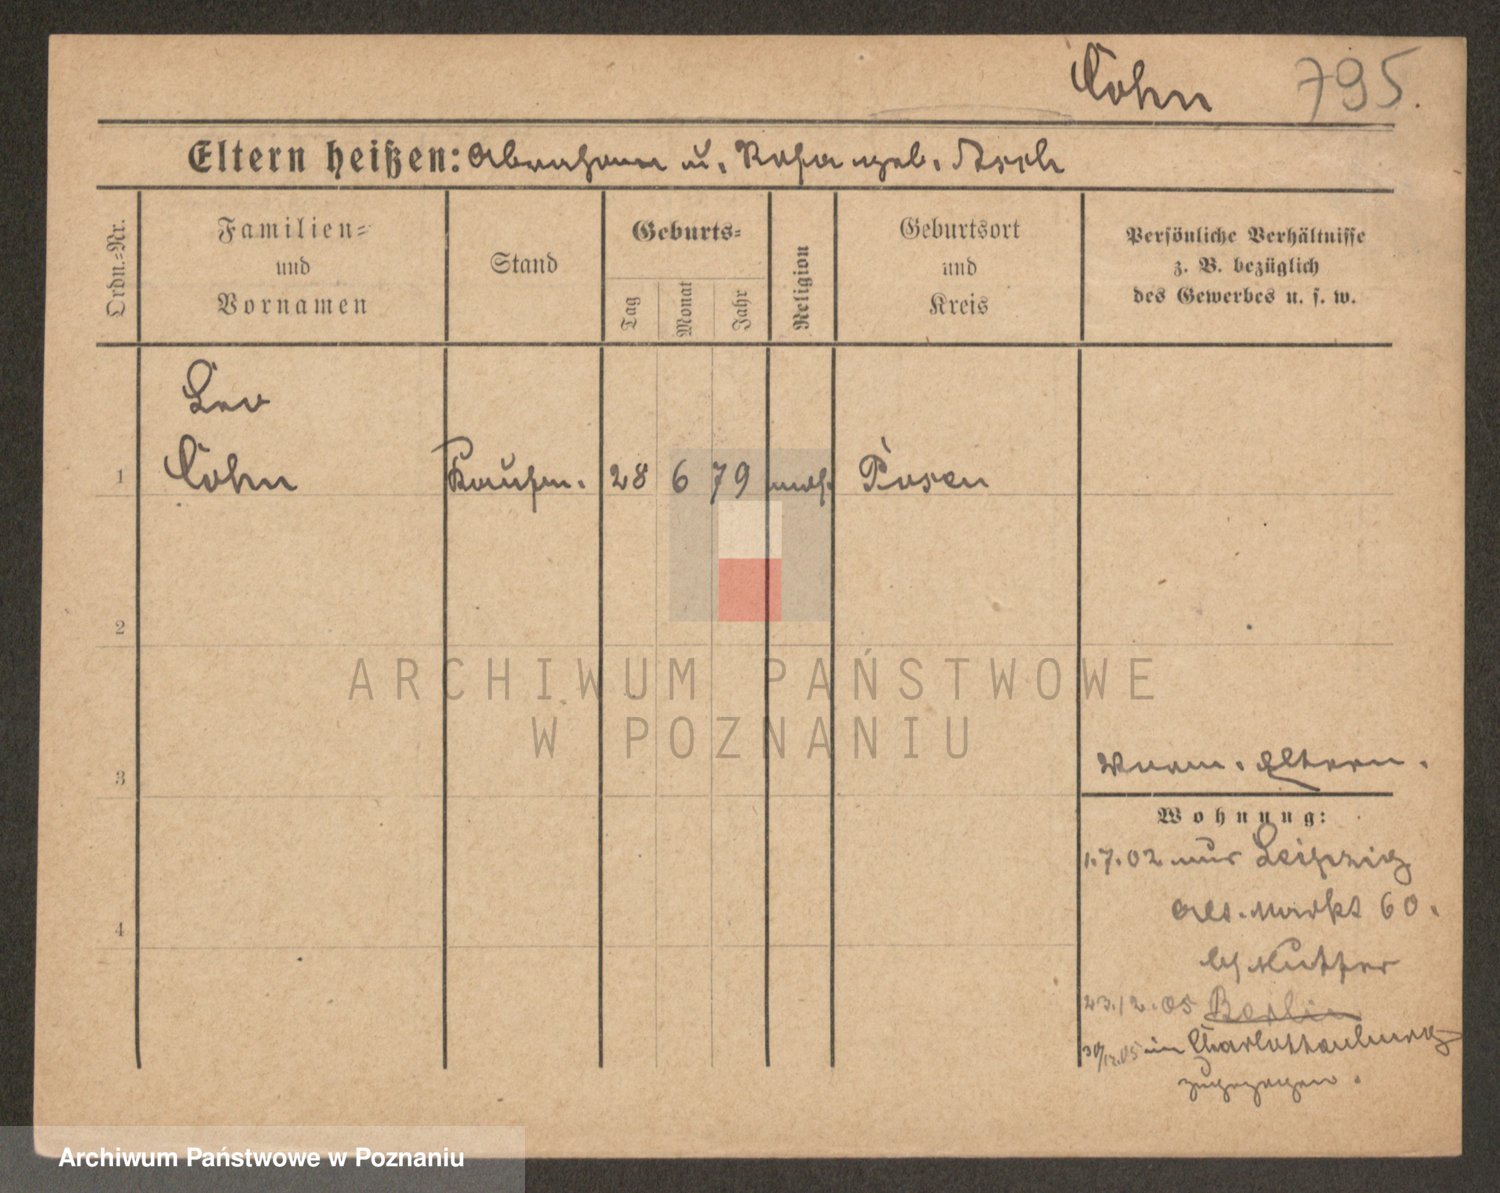 Cohn 795.
Eltern heißen: Abraham u. Rosa geb. Asch
Ordn.=Nr.
Familien=
und
Vornamen
Stand
Geburts=
Tag
Monat
Jahr
Religion
Geburtsort
und
Kreis
Persönliche Verhältnisse
z. B. bezüglich
des Gewerbes u. s. w.
Leo
1 Cohn Kaufm. 28 6 79 mos. Posen
2
ARCHIWUM PAŃSTWOWE
W POZNANIU
3
Eltern.
Wohnung:
1.7.02 aus Leipzig
Alt. Markt 60.
b/ Mutter
23.12.05 Berlin
30/12.05 in Charlottenburg
zugezogen.
4
Archiwum Państwowe w Poznaniu